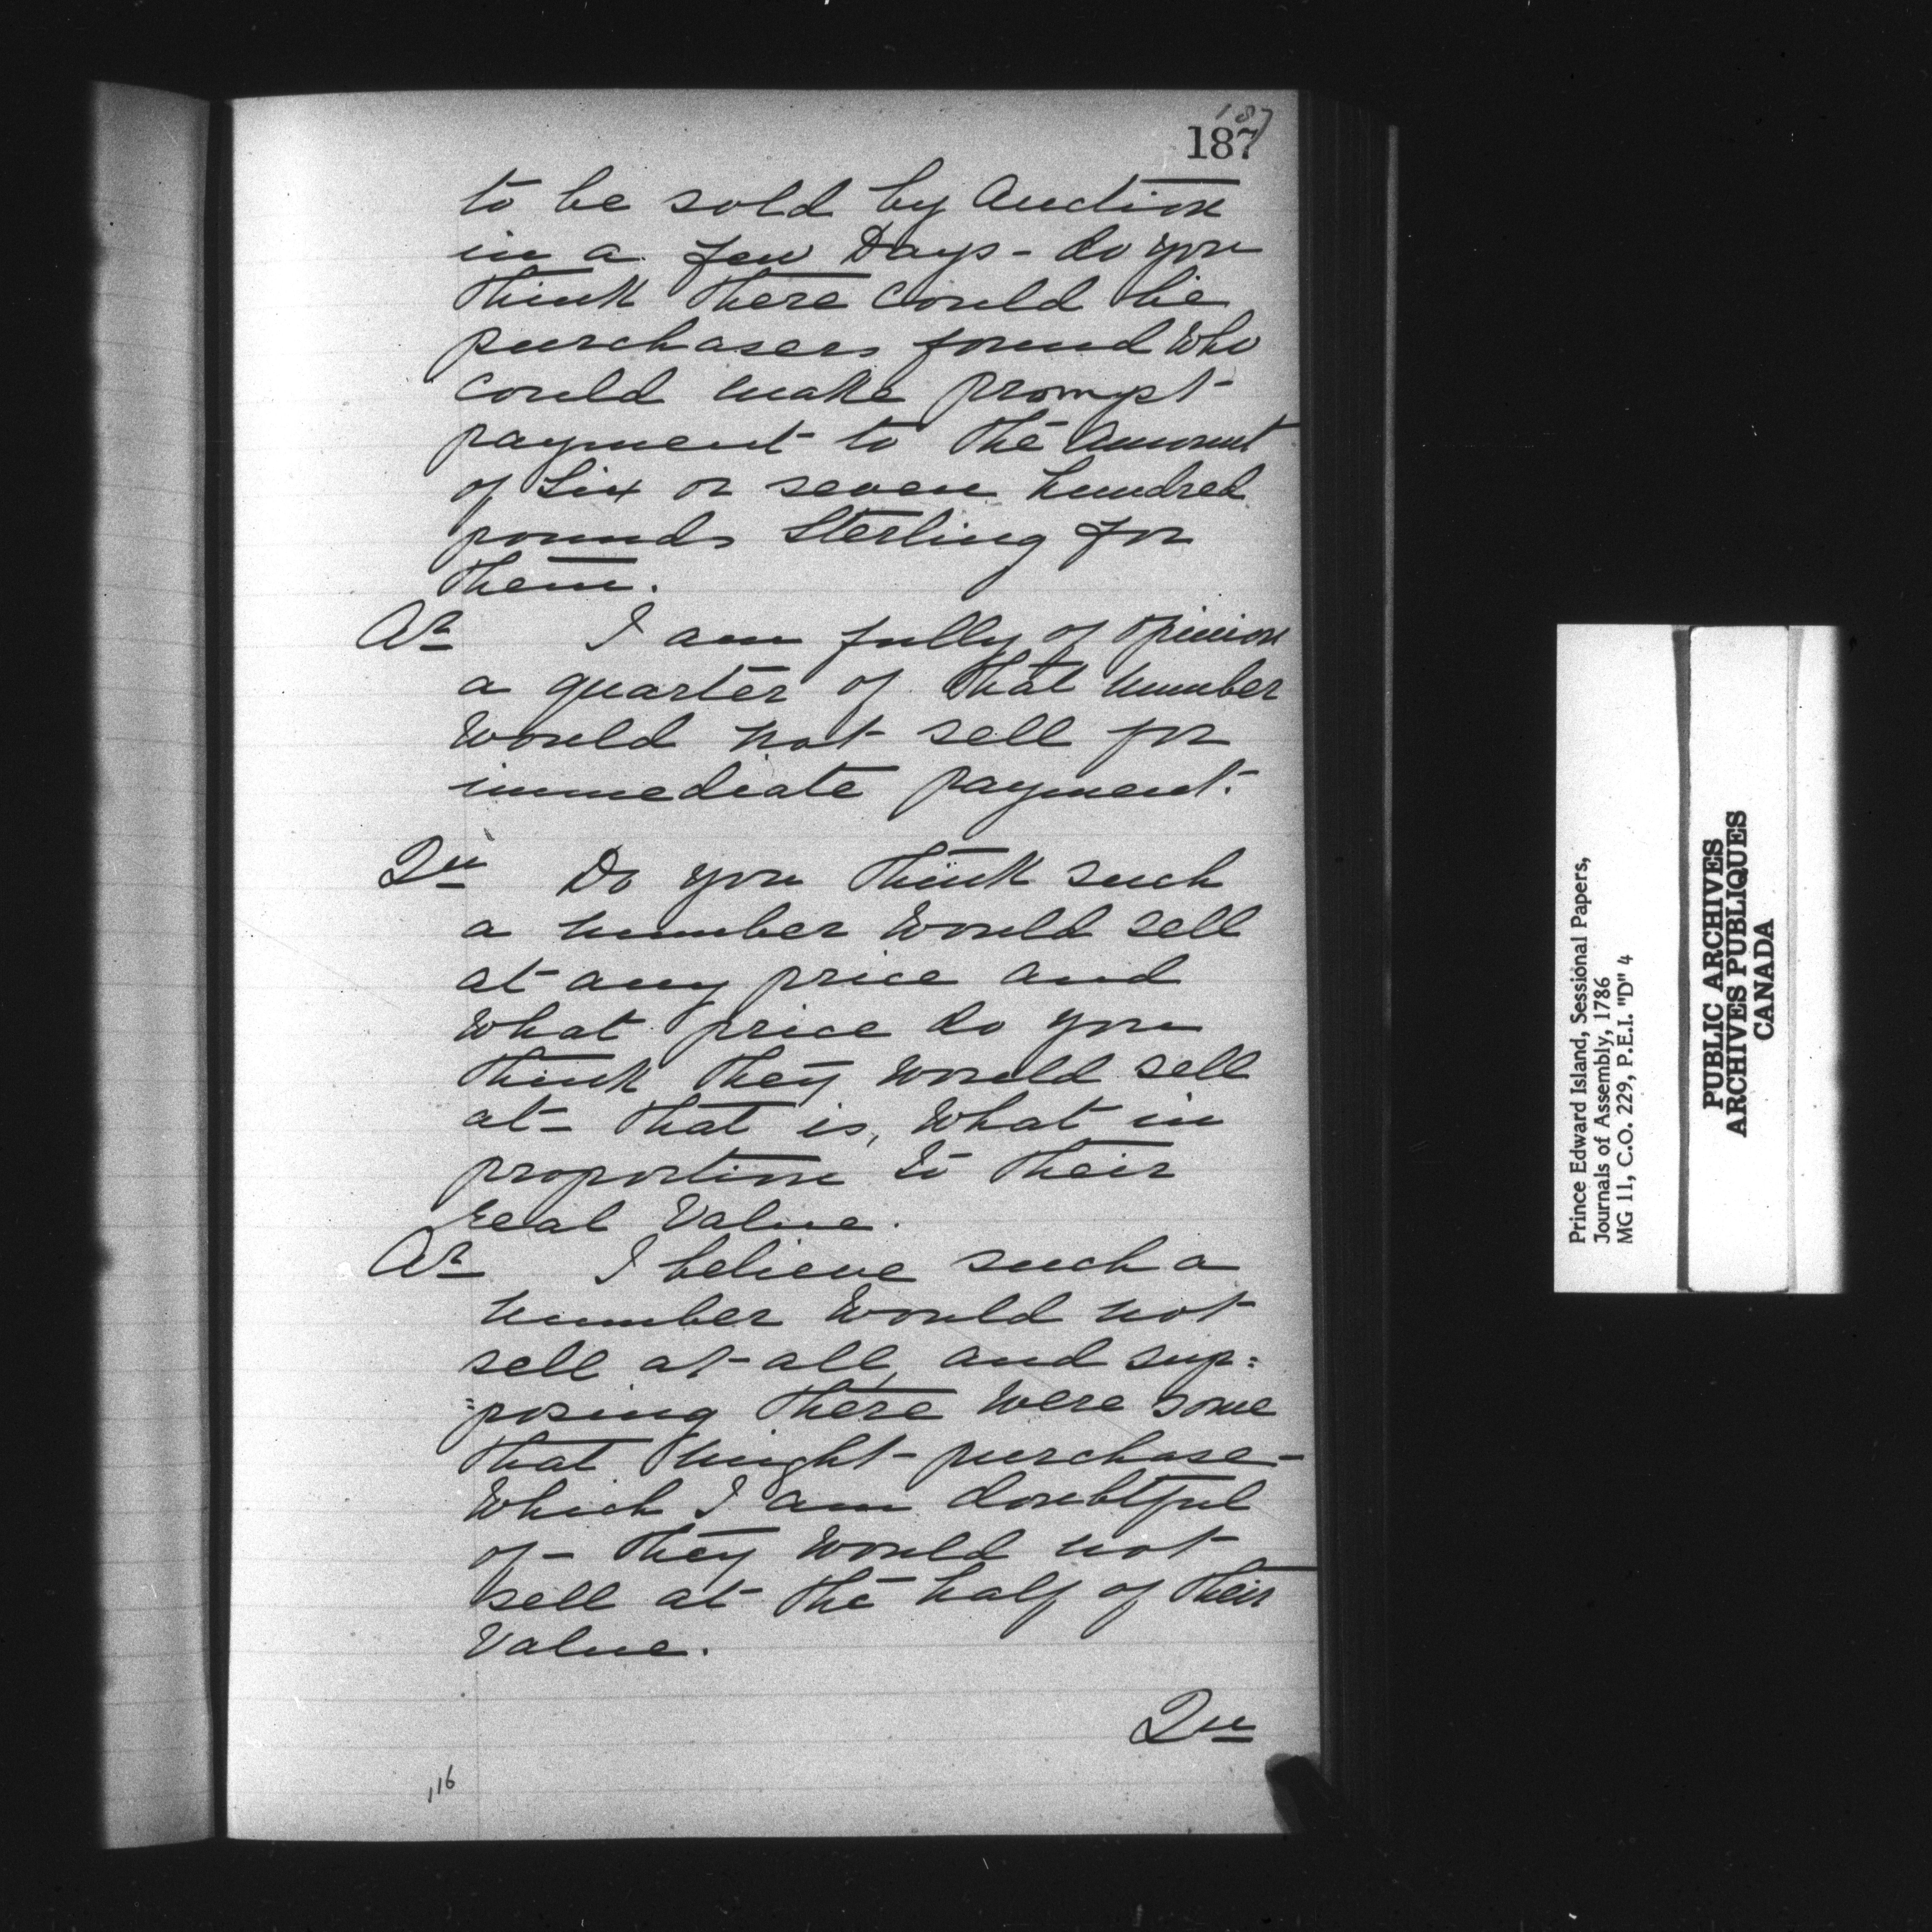 187
187
to be sold by Auction
in a few Days - do you
think there could be
purchasers found who
could make prompt
payment to the Amount
of Six or seven hundred
pounds Sterling for
them.
Ar I am fully of Opinion
a quarter of that number
would not sell for
immediate payment.
Qu Do you think such
a number would sell
at any price and
what price do you
think they would sell
at - that is, what in
proportion to their
real Value.
Ar I believe such a
number would not
sell at all, and sup:
:posing there were some
that might purchase -
which I am doubtful
of - they would not
sell at the half of their
Value.
Qu
116
Prince Edward Island, Sessional Papers,
Journals of Assembly, 1786
MG 11, C.O. 229, P.E.I. "D" 4
PUBLIC ARCHIVES
ARCHIVES PUBLIQUES
CANADA